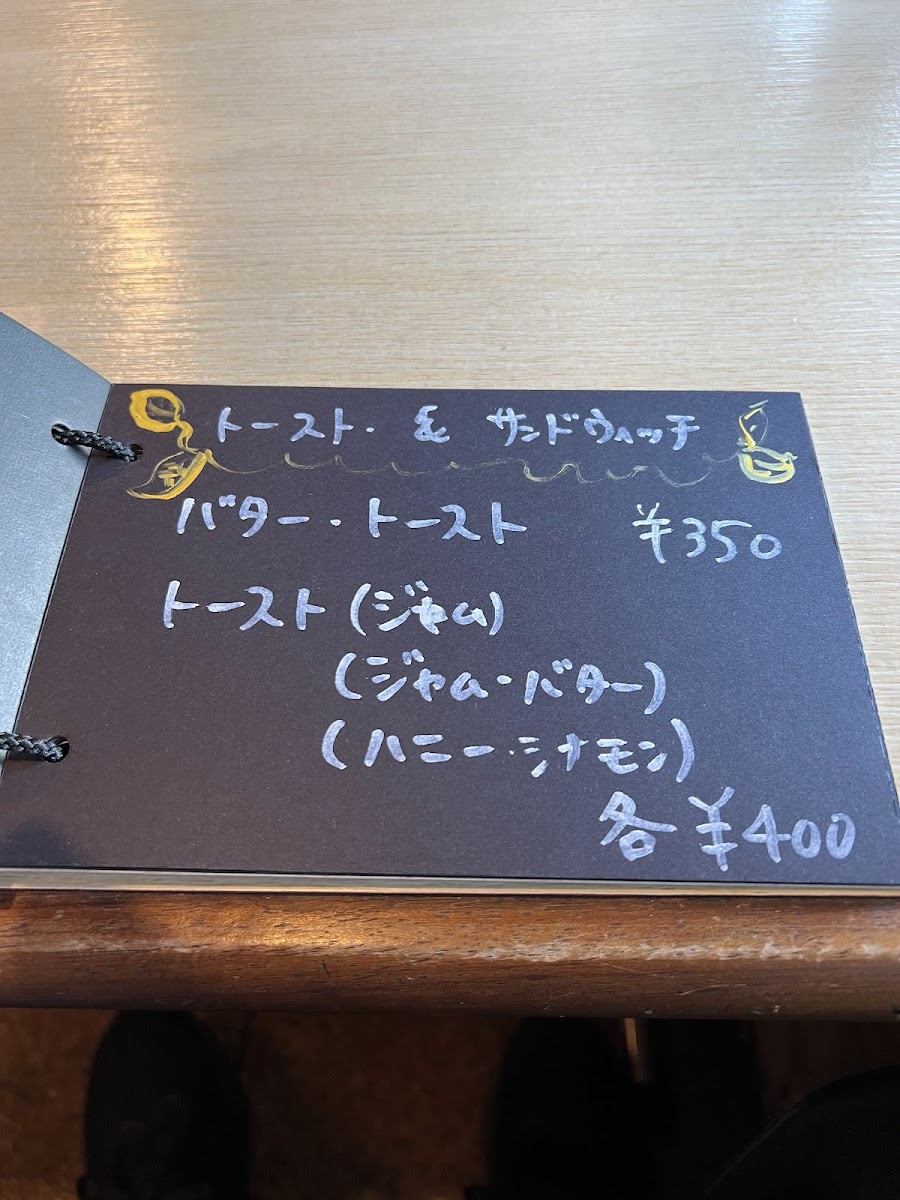 トースト・ & サンドウィッチ
バター・トースト ¥350
トースト (ジャム)
(ジャム・バター)
(ハニー・シナモン)
各 ¥400